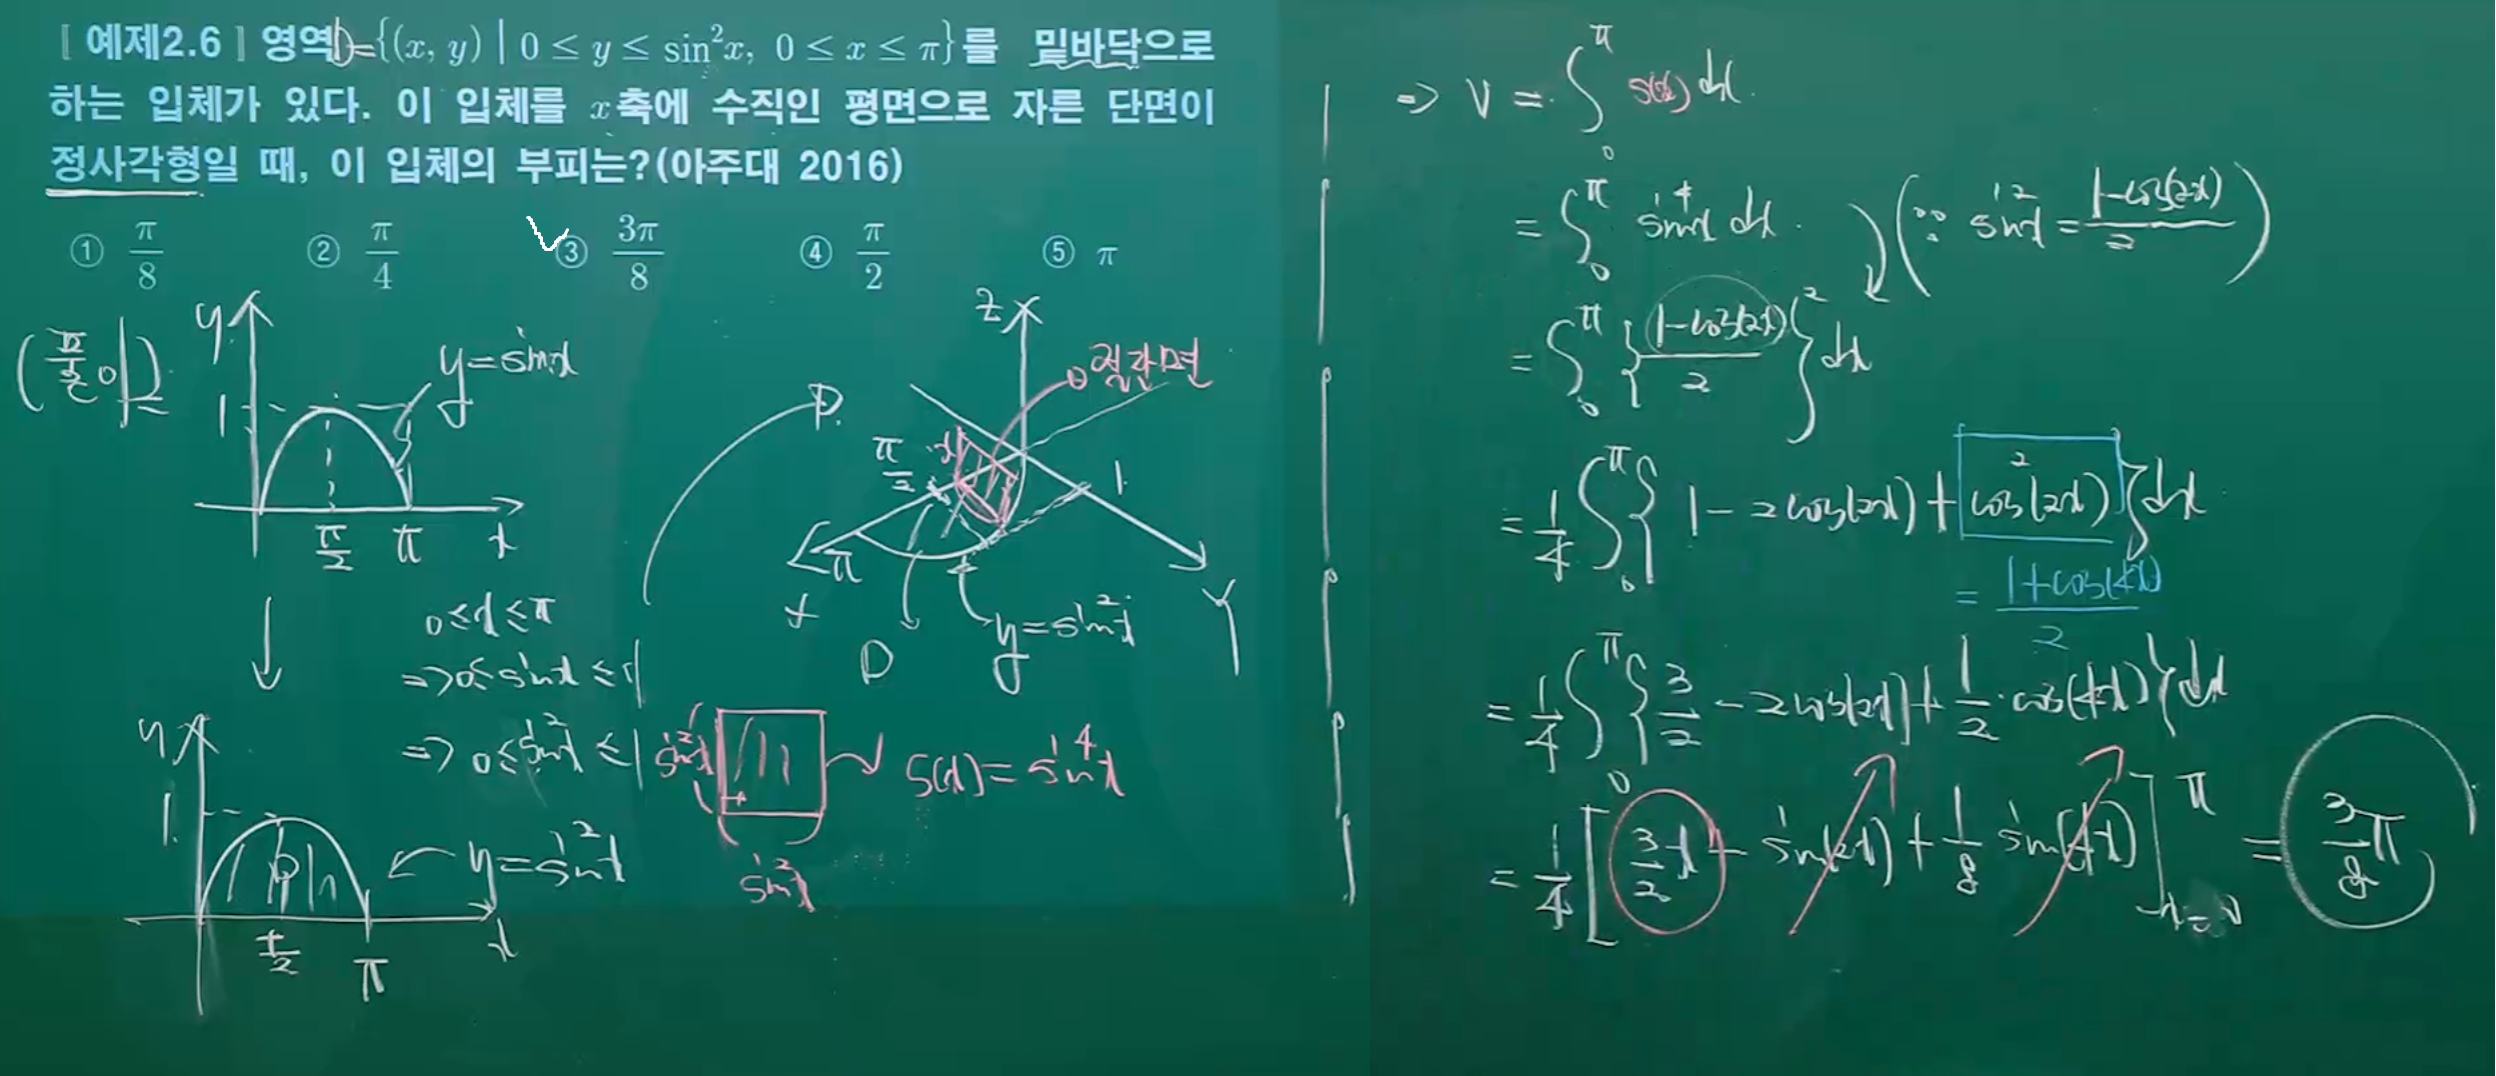 [ 예제2.6 ] 영역D={(x, y) | 0 ≤ y ≤ sin²x, 0 ≤ x ≤ π}를 밑바닥으로
하는 입체가 있다. 이 입체를 x축에 수직인 평면으로 자른 단면이
정사각형일 때, 이 입체의 부피는?(아주대 2016)
① π/8 ② π/4 ③ 3π/8 ④ π/2 ⑤ π
(풀이)
y
1
y=sinx
π/2 π x
0≤x≤π
⇒0≤sinx≤1
⇒0≤sin²x≤1
y
1
D
y=sin²x
π/2 π x
D
z
절단면
π/2
x
1
π
x
D
y=sin²x
Y
sin²x
S(x)=sin⁴x
sin²x
⇒ V = ∫₀^π S(x) dx
= ∫₀^π sin⁴x dx (∵ sin²x = (1-cos(2x))/2)
= ∫₀^π {(1-cos(2x))/2}² dx
= 1/4 ∫₀^π {1-2cos(2x)+cos²(2x)}dx
= (1+cos(4x))/2
= 1/4 ∫₀^π {3/2 - 2cos(2x) + 1/2·cos(4x)}dx
= 1/4 [3/2 x - sin(2x) + 1/8 sin(4x)]_{x=0}^π = 3/8 π